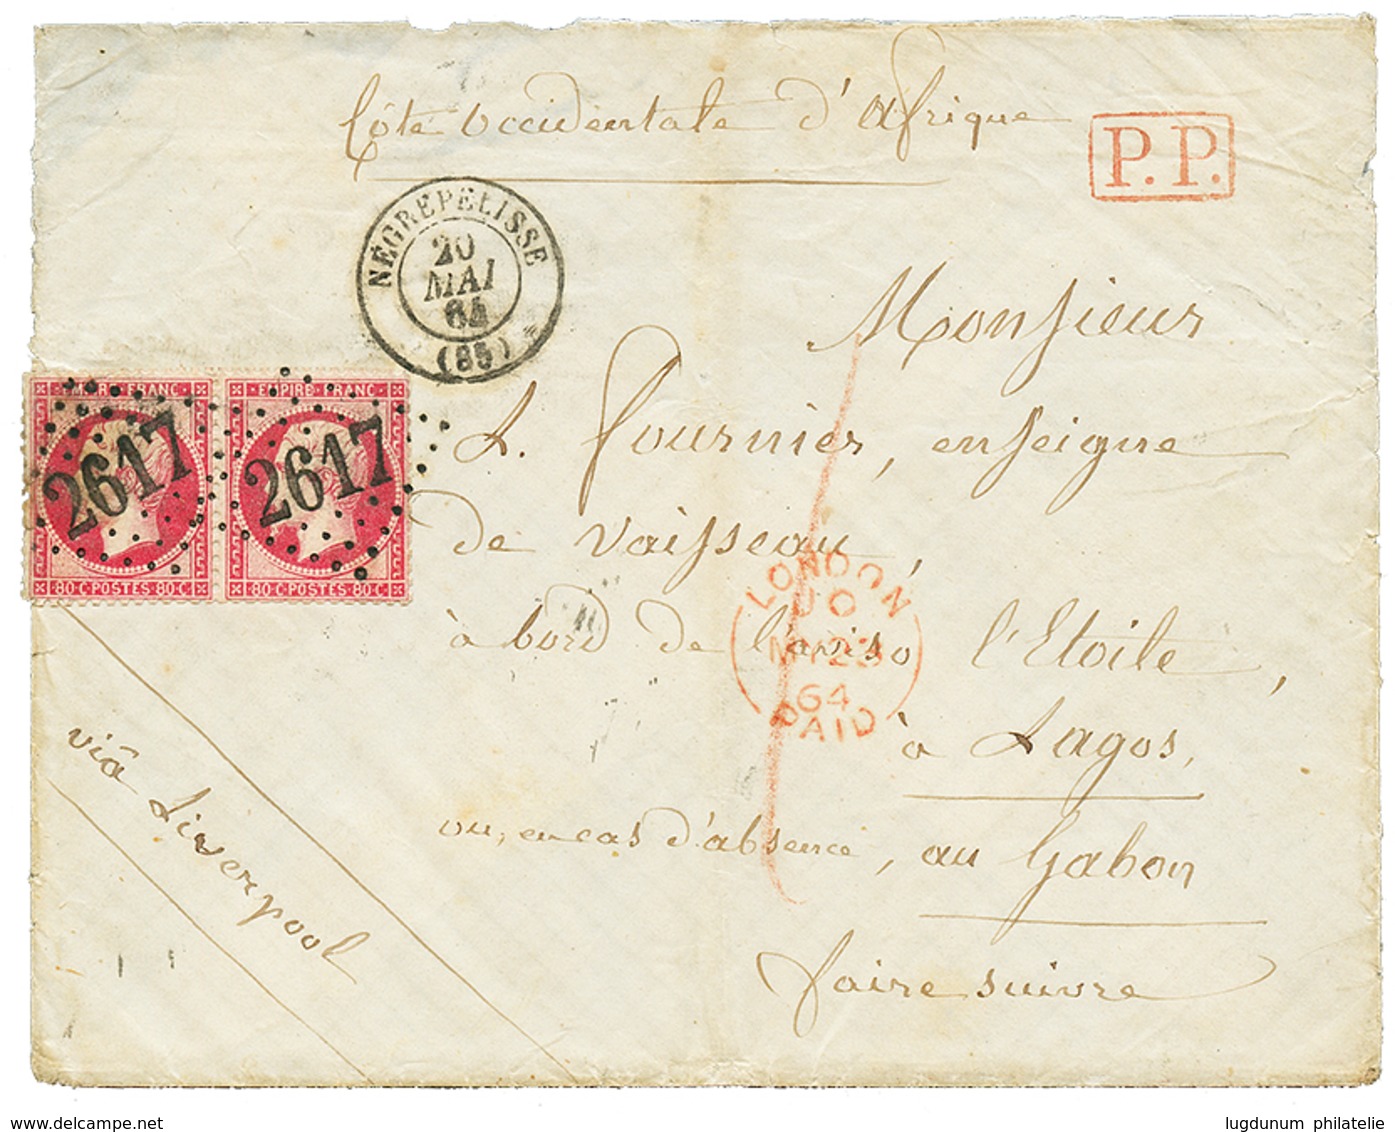 Côte Occidentale d'Afrique
P.P.
NÉGREPELISSE
20
MAI
64
Monsieur
EMPIRE FRANC
EMPIRE FRANC
2617
2617
80·C·POSTES·80·C
80·C·POSTES·80·C
A. Fournier, enseigne
de vaisseau,
à bord de l'aviso l'Etoile,
à Lagos,
ou, en cas d'absence, au Gabon
faire suivre
LONDON
MY23
64
PAID
viâ Liverpool
lugdunum philatelie